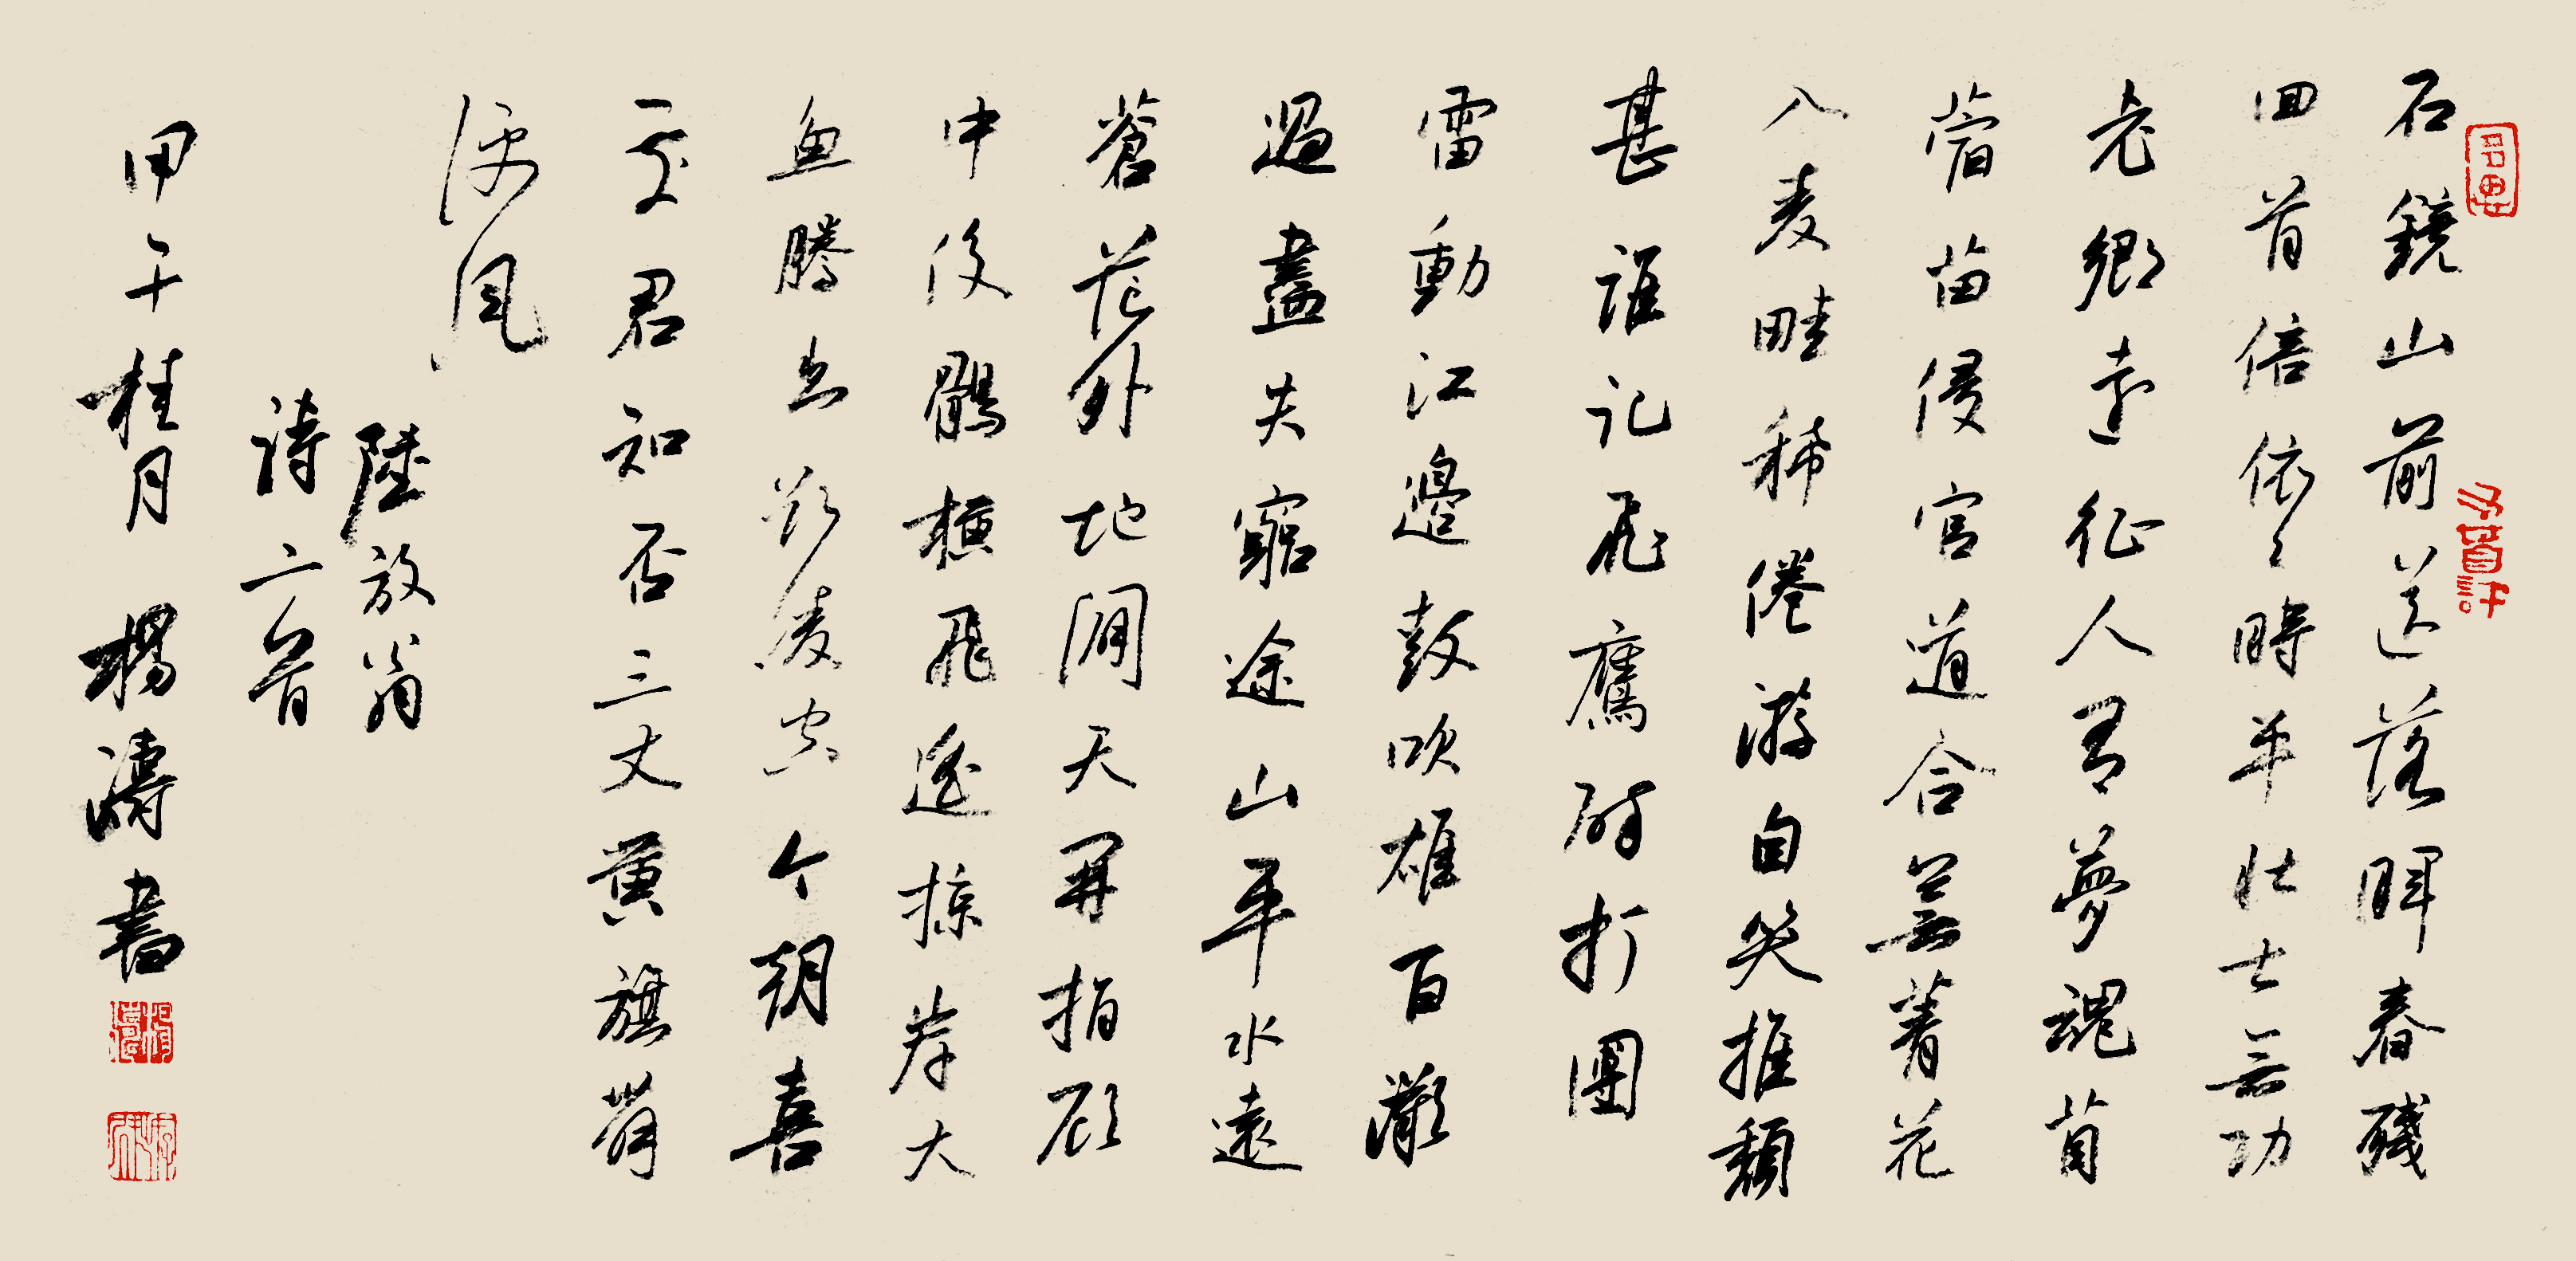 石鏡山前送落暉春殘
回首倍依〻時平壯士無功
老鄉遠征人有夢魂苜
蓿苗侵官道合蕪菁花
入麥畦稀倦游自笑摧頹
甚誰記飛鷹醉打圍
雷動江邊鼓吹雄百灘
過盡失窮途山平水遠
蒼茫外地闢天開指顧
中俊鶻橫飛遙掠岸大
魚騰出欲凌空今朝喜
處君知否三丈黃旗舞
便風
陸放翁
詩二首
甲午桂月 楊濤書